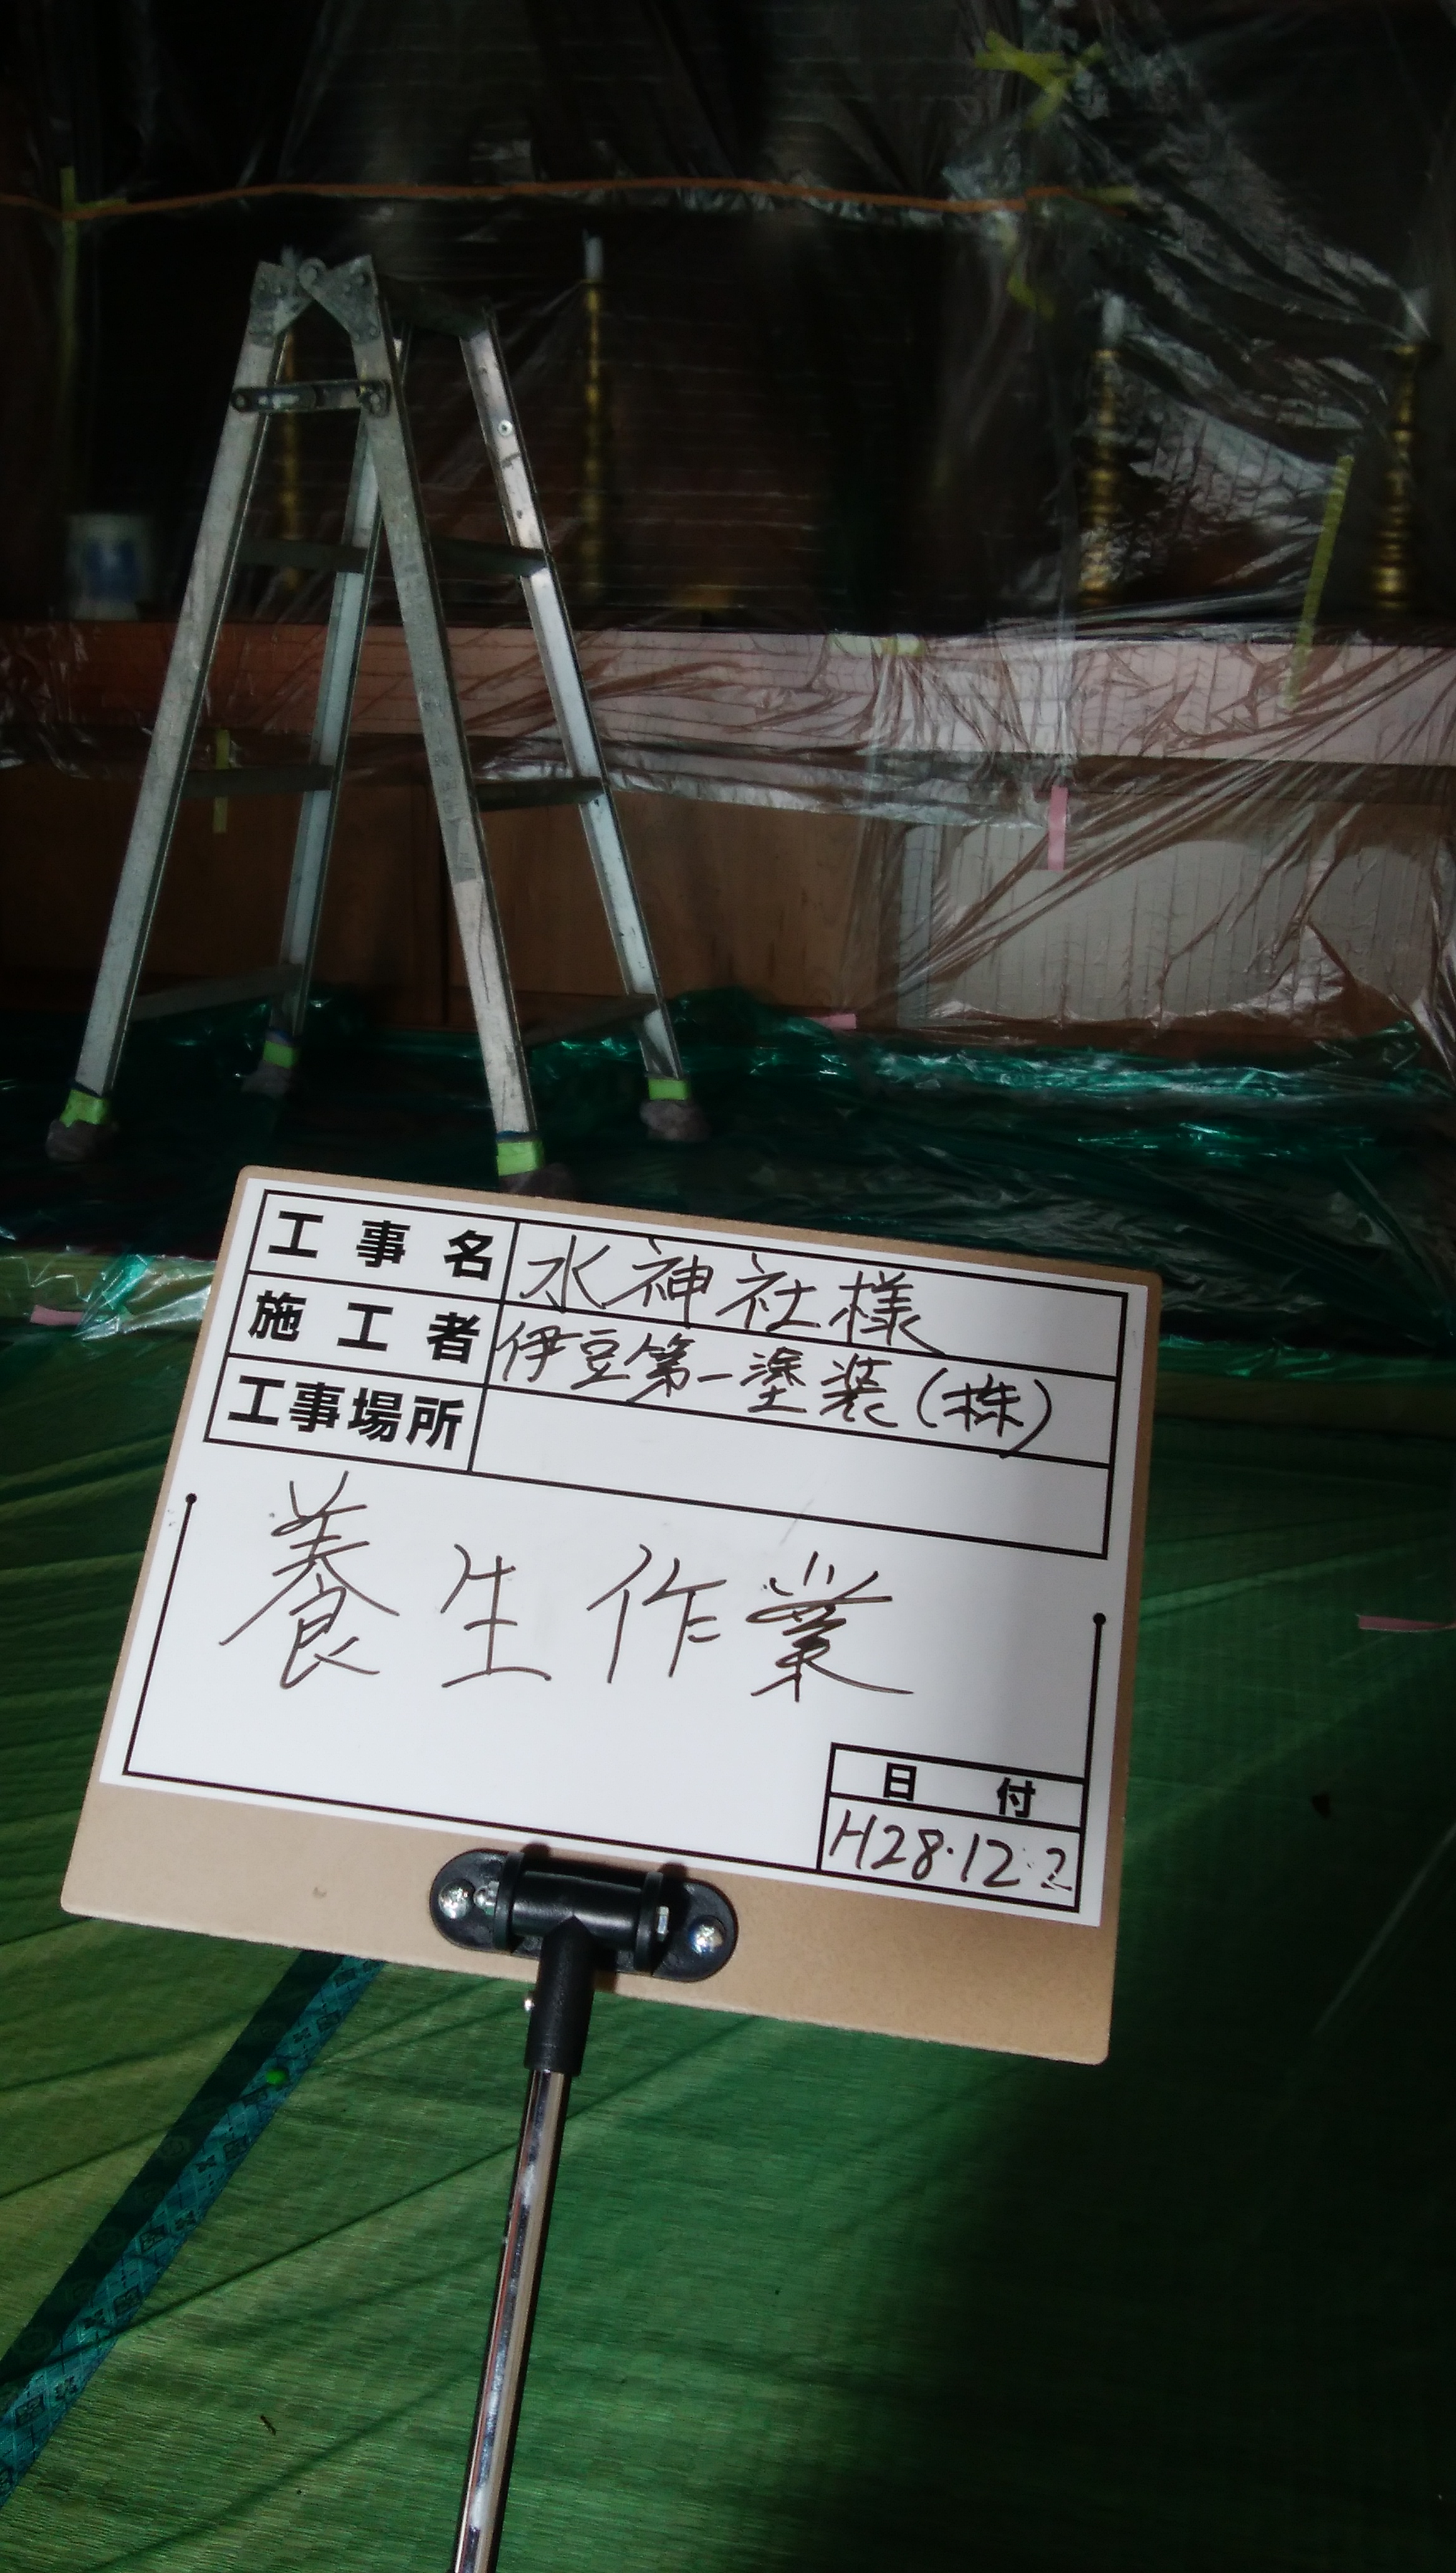 工事名 水神社様
施工者 伊豆第一塗装(株)
工事場所
養生作業
日付
H28.12.2